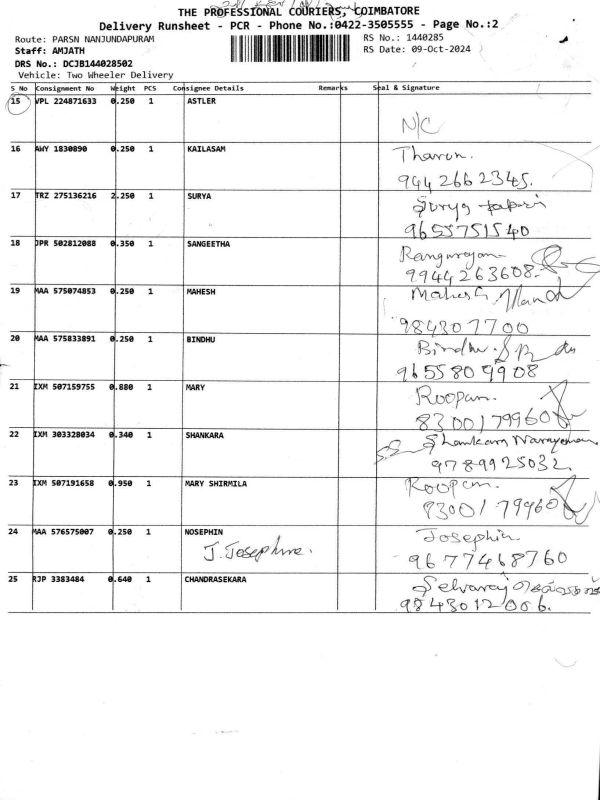 THE PROFESSIONAL COURIERS, COIMBATORE
Delivery Runsheet - PCR - Phone No.:0422-3505555 - Page No.:2
Route: PARSN NANJUNDAPURAM
RS No.: 1440285
Staff: AMJATH
RS Date: 09-Oct-2024
DRS No.: DCJB144028502
Vehicle: Two Wheeler Delivery
S No Consignment No Weight PCS Consignee Details Remarks Seal & Signature
15 VPL 224871633 0.250 1 ASTLER
N/C
16 AWY 1830890 0.250 1 KAILASAM
Tharun.
9442662345.
17 TRZ 275136216 2.250 1 SURYA
Surya
9655751540
18 JPR 502812088 0.350 1 SANGEETHA
Rangarayan
9944263608.
19 MAA 575074853 0.250 1 MAHESH
Mahesh
984307700
20 MAA 575833891 0.250 1 BINDHU
Bindhu.
9655809908
21 IXM 507159755 0.880 1 MARY
Roopam.
8300179960
22 IXM 303328034 0.340 1 SHANKARA
Shankara Narayanan
9789925032.
23 IXM 507191658 0.950 1 MARY SHIRMILA
Roopam.
8300179960
24 MAA 576575007 0.250 1 NOSEPHIN
Josephin
J. Josephine.
9677468760
25 RJP 3383484 0.640 1 CHANDRASEKARA
Selvaraj
9843012006.